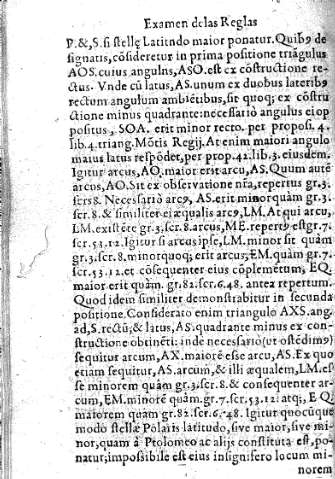 Examen delas Reglas
P.&,S.si stellę Latitudo maior ponatur. Quibꝰ de
signatis, cōsideretur in prima positione triāgulus
AOS.cuius angulns, ASO.est ex cōstructione re-
ctus. Vnde cū latus, AS.unum ex duobus lateribꝰ
rectum angulum ambiētibus, sit quoq; ex cōstru
ctione minus quadrante:necessariō angulus ei op
positus, SOA. erit minor recto. per proposi. 4.
lib.4.triang.Mōtis Regij.At enim maiori angulo
maius latus respōdet, per prop.42.lib.3.eiusdem.
Igitur arcus, AO.maior erit arcu, AS. Quum autē
arcus, AO.Sit ex observatione nr̄a, repertus gr.3.
scr.8. Necessariō arcꝰ, AS.erit minor quàm gr.3.
scr.8.& similiter ei æqualis arcꝰ, LM. At qui arcu,
LM.existēte gr.3.scr.8.arcus, ME.repertꝰ est gr.7.
scr.53.12. Igitur si arcus ipse, LM.minor sit quàm
gr.3.scr.8.minor quoq; erit arcus, EM.quàm gr.7.
scr.53.12.et cōsequenter eius cōplemētum, EQ.
maior erit quàm. gr.82.scr.6.48. antea repertum.
Quod idem similiter demonstrabitur in secunda
positione. Considerato enim triangulo AXS.ang.
ad, S.rectū;& latus, AS.quadrante minus ex con-
structione obtinēti: inde necessariō (ut ostēdimꝰ)
sequitur arcum, AX.maiorē esse arcu, AS. Ex quo
etiam sequitur, AS.arcum, & illi æqualem, LM.es-
se minorem quàm gr.3.scr.8.& consequenter ar-
cum, EM.minorē quàm.gr.7.scr.53.12: atq;, EQ;
maiorem quàm gr.82.scr.6.48. Igitur quocūque
modo stellæ Polaris latitudo, sive maior, sive mi-
nor, quàm à Ptolomeo ac alijs constituta est, po-
natur; impossibile est eius insignifero locum mi-
norem